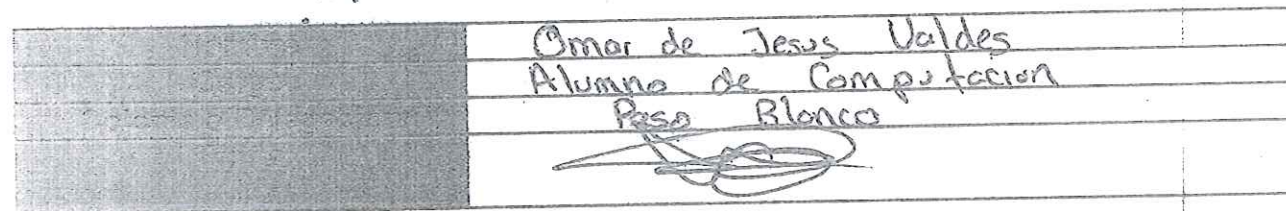 Omar de Jesus Valdes
Alumno de Computacion
Paso Blanco